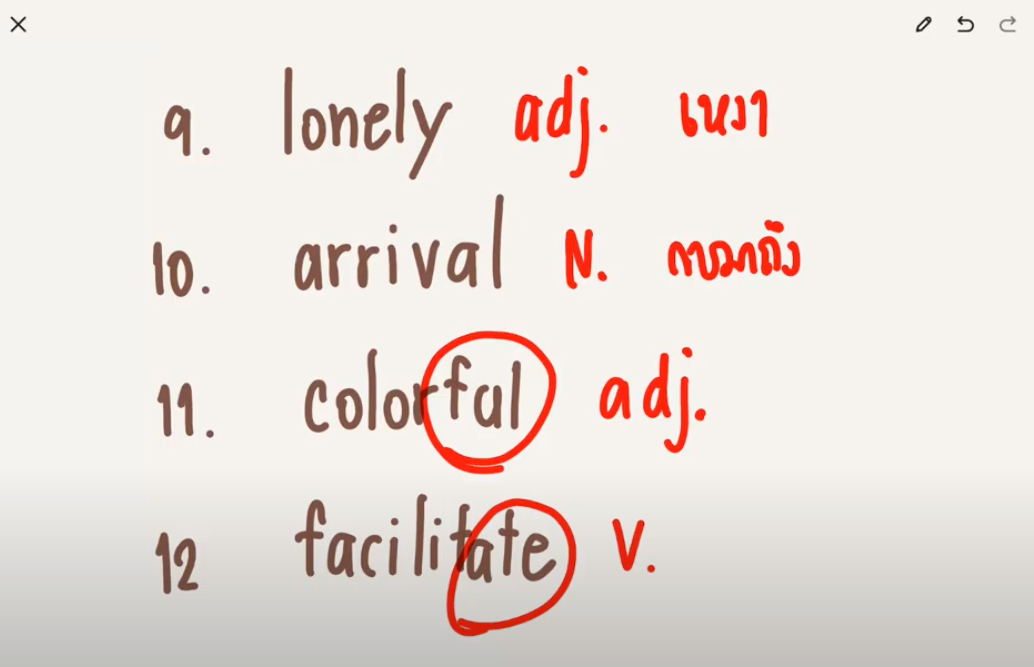 9. lonely adj. เหงา
10. arrival N. การมาถึง
11. colorful adj.
12 facilitate V.